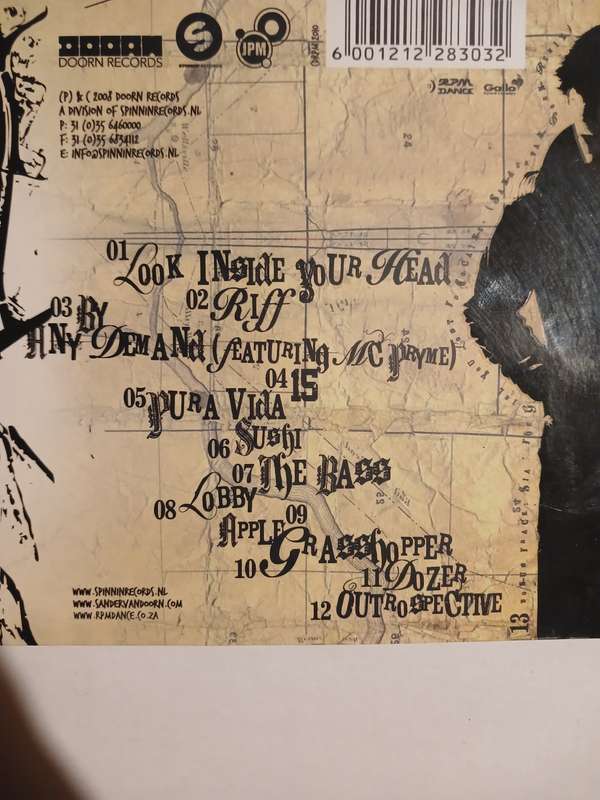 DOORN
DOORN RECORDS
S
JPM
6 001212 283032
RPM DANCE
Gallo
(P) & C 2008 DOORN RECORDS
A DIVISION OF SPINNINRECORDS.NL
P: 31 (0)35 6460000
F: 31 (0)35 6834112
E: INFO@SPINNINRECORDS.NL
01 Look INSIdE YOUR HEAd
02 Riff
03 BY
ANY DEMANd (fEATURINg MC PRYME)
04 15
05 PURA VIdA
06 SUShI
07 ThE BASS
08 LOBBY
09 APPLE
10 GRASShOPPER
11 DOZER
12 OUTROSPECTIVE
13 BONUS TRACK:
WWW.SPINNINRECORDS.NL
WWW.SANDERVANDOORN.COM
WWW.RPMDANCE.CO.ZA
24